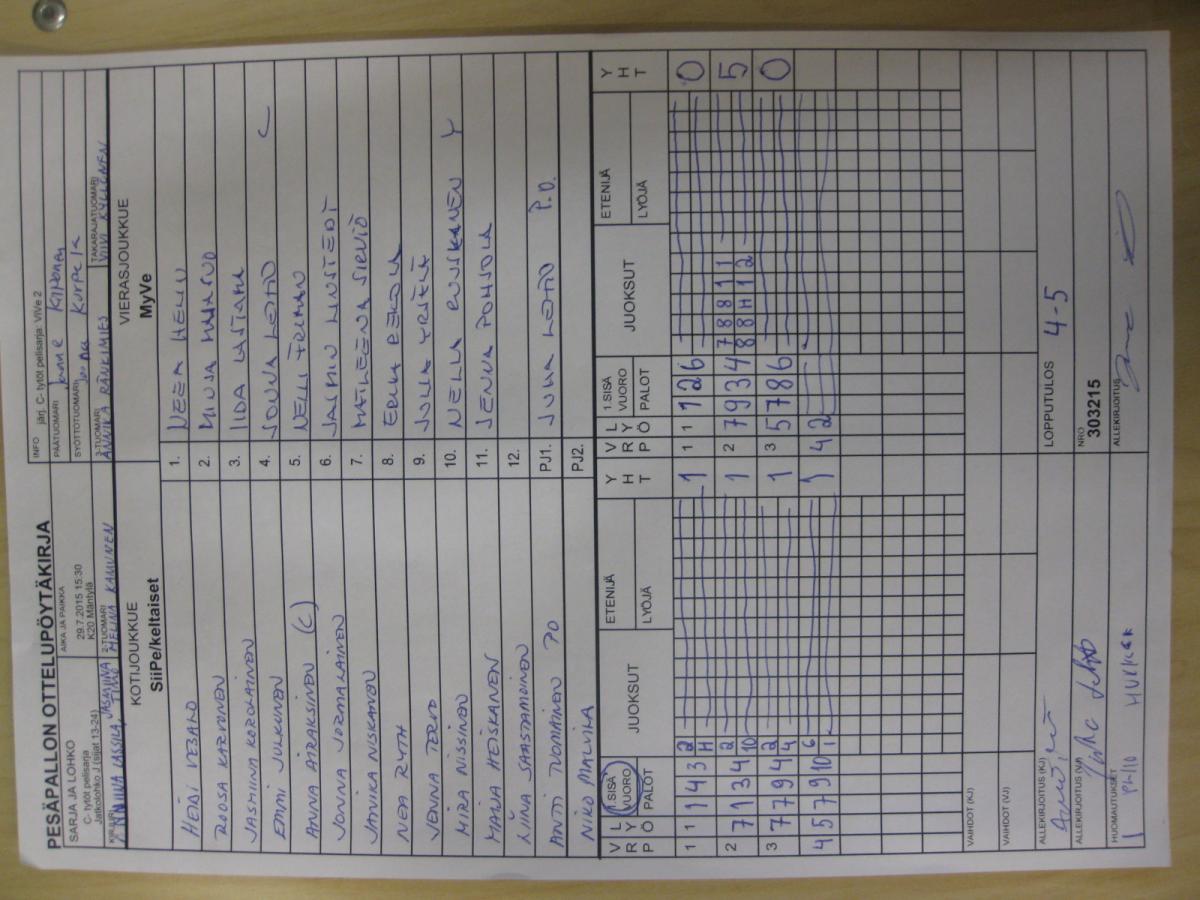 PESÄPALLON OTTELUPÖYTÄKIRJA
SARJA JA LOHKO
C- tytöt pelisarja
Jatkolohko J (sijat 13-24)
AIKA JA PAIKKA
29.7.2015 15:30
K20 Mäntylä
INFO järj. C- tytöt pelisarja: ViVe 2
PÄÄTUOMARI Janne
SYÖTTÖTUOMARI Kurpela
2-TUOMARI MELINA KAMUNEN
3-TUOMARI ANNIKA RÄNKIMIES
TAKARAJATUOMARI VIIVI KYLLÖNEN
KOTIJOUKKUE
SiiPe/keltaiset
VIERASJOUKKUE
MyVe
HEIDI VESALO 1. NEEA HELIN
ROOSA KARVONEN 2. MINJA
JASMIINA KOROLAINEN 3. IIDA LASTAMA
EMMI JULKUNEN 4. JONNA LEHTO C
ANNA AIRAKSINEN (C) 5. NELLI
JONNA JORMALAINEN 6. JASMIN LINSTEDT
JANNIKA NISKANEN 7. MATLEENA SIEVIÖ
NEA RYTH 8. EKOLA
VENNA TERVO 9. JULIA YRJÄLÄ
MIRA NISSINEN 10. NELLA RUUSKANEN Y
MAIJA HEISKANEN 11. JENNA POHJOLA
NIINA SAASTAMOINEN 12.
ANTI TUOMAINEN PO PJ1. JUHA LEHTO P.O.
NIKO MALVILA PJ2.
V R P L Y Ö 1.SISÄ VUORO PALOT JUOKSUT ETENIJÄ LYÖJÄ Y H T V R P L Y Ö 1.SISÄ VUORO PALOT JUOKSUT ETENIJÄ LYÖJÄ Y H T
1 1 1 4 3 2 H 1 1 1 1 2 6 0
2 7 1 3 4 2 10 1 2 7 9 3 4 7 8 8 1 1 8 8 H 1 2 5
3 7 7 9 4 2 4 1 3 5 7 8 6 0
4 5 7 9 10 6 1 1 4 2
VAIHDOT (KJ)
VAIHDOT (VJ)
ALLEKIRJOITUS (KJ)
LOPPUTULOS 4-5
ALLEKIRJOITUS (VJ)
NRO
303215
HUOMAUTUKSET
ALLEKIRJOITUS